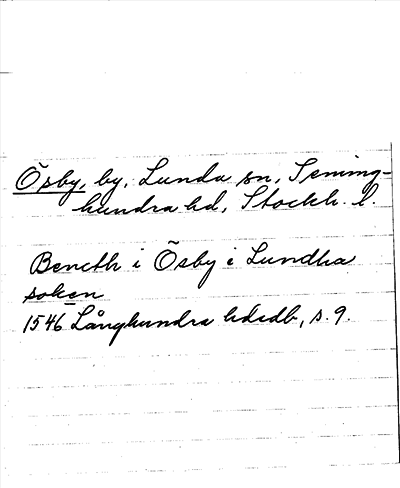 Ösby, by, Lunda sn, Seming-
hundra hd, Stockh. l.
Bencth i Ösby i Lundha
soken
1546 Långhundra hdsdb, s. 9.